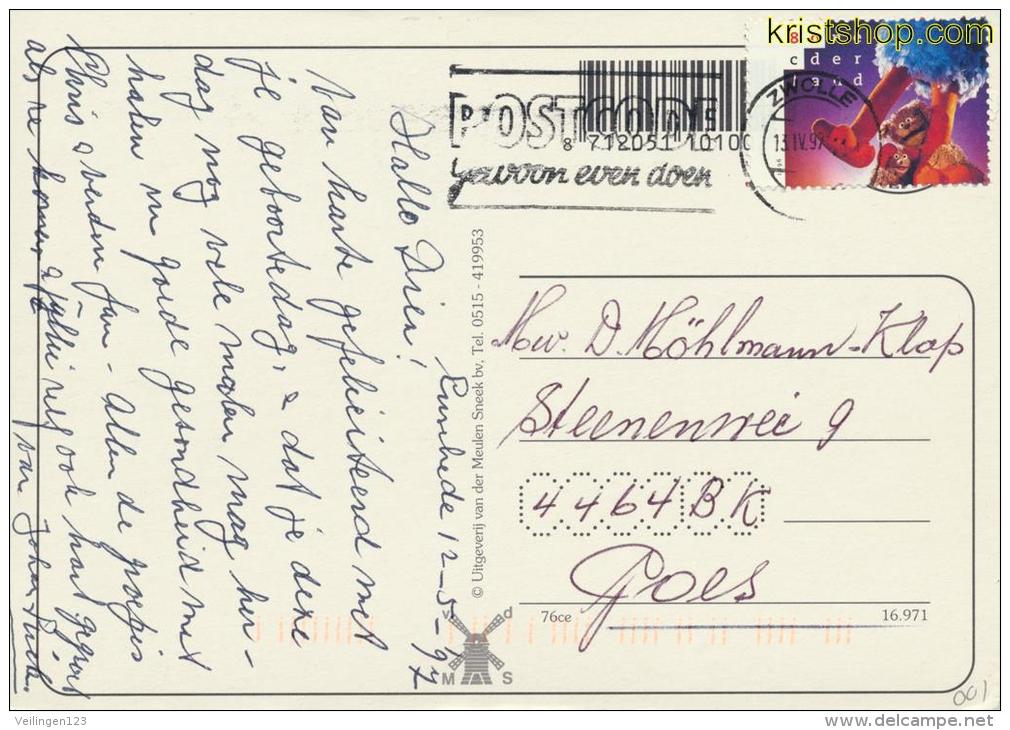 kristshop.com
80 n e
c der
land
POSTCODE
gewoon even doen
8 712051 10100
ZWOLLE
13.IV.97
Ruinhede 12-5-'97
Hallo Drien!
Van harte gefeliciteerd met
je geboortedag, & dat je deze
dag nog vele malen mag her-
halen in goede gezondheid met
Chris & verdere fam - Allen de groetjes
als ze komen & jullie zelf ook hart. gegroet
van Johan &
© Uitgeverij van der Meulen Sneek bv, Tel. 0515 - 419953
Mw. D. Möhlmann-Klap
Steenenwei 9
4464 BK
Goes
76ce
16.971
d
M S
001
Veilingen123
www.delcampe.net